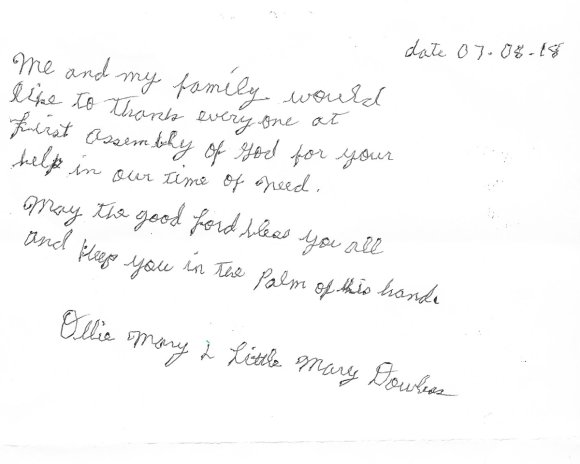 date 07-08-18
Me and my family would
like to thank everyone at
First Assembly of God for your
help in our time of need.
May the good Lord bless you all
and keep you in the Palm of his hand.
Ollie Mary & Little Mary